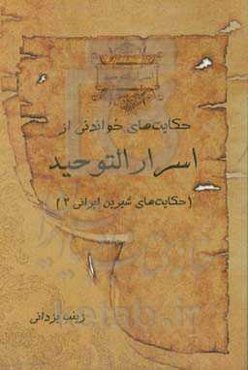 حکایت‌های خواندنی از
اسرار التوحید
(حکایت‌های شیرین ایرانی ۲)
زینب یزدانی